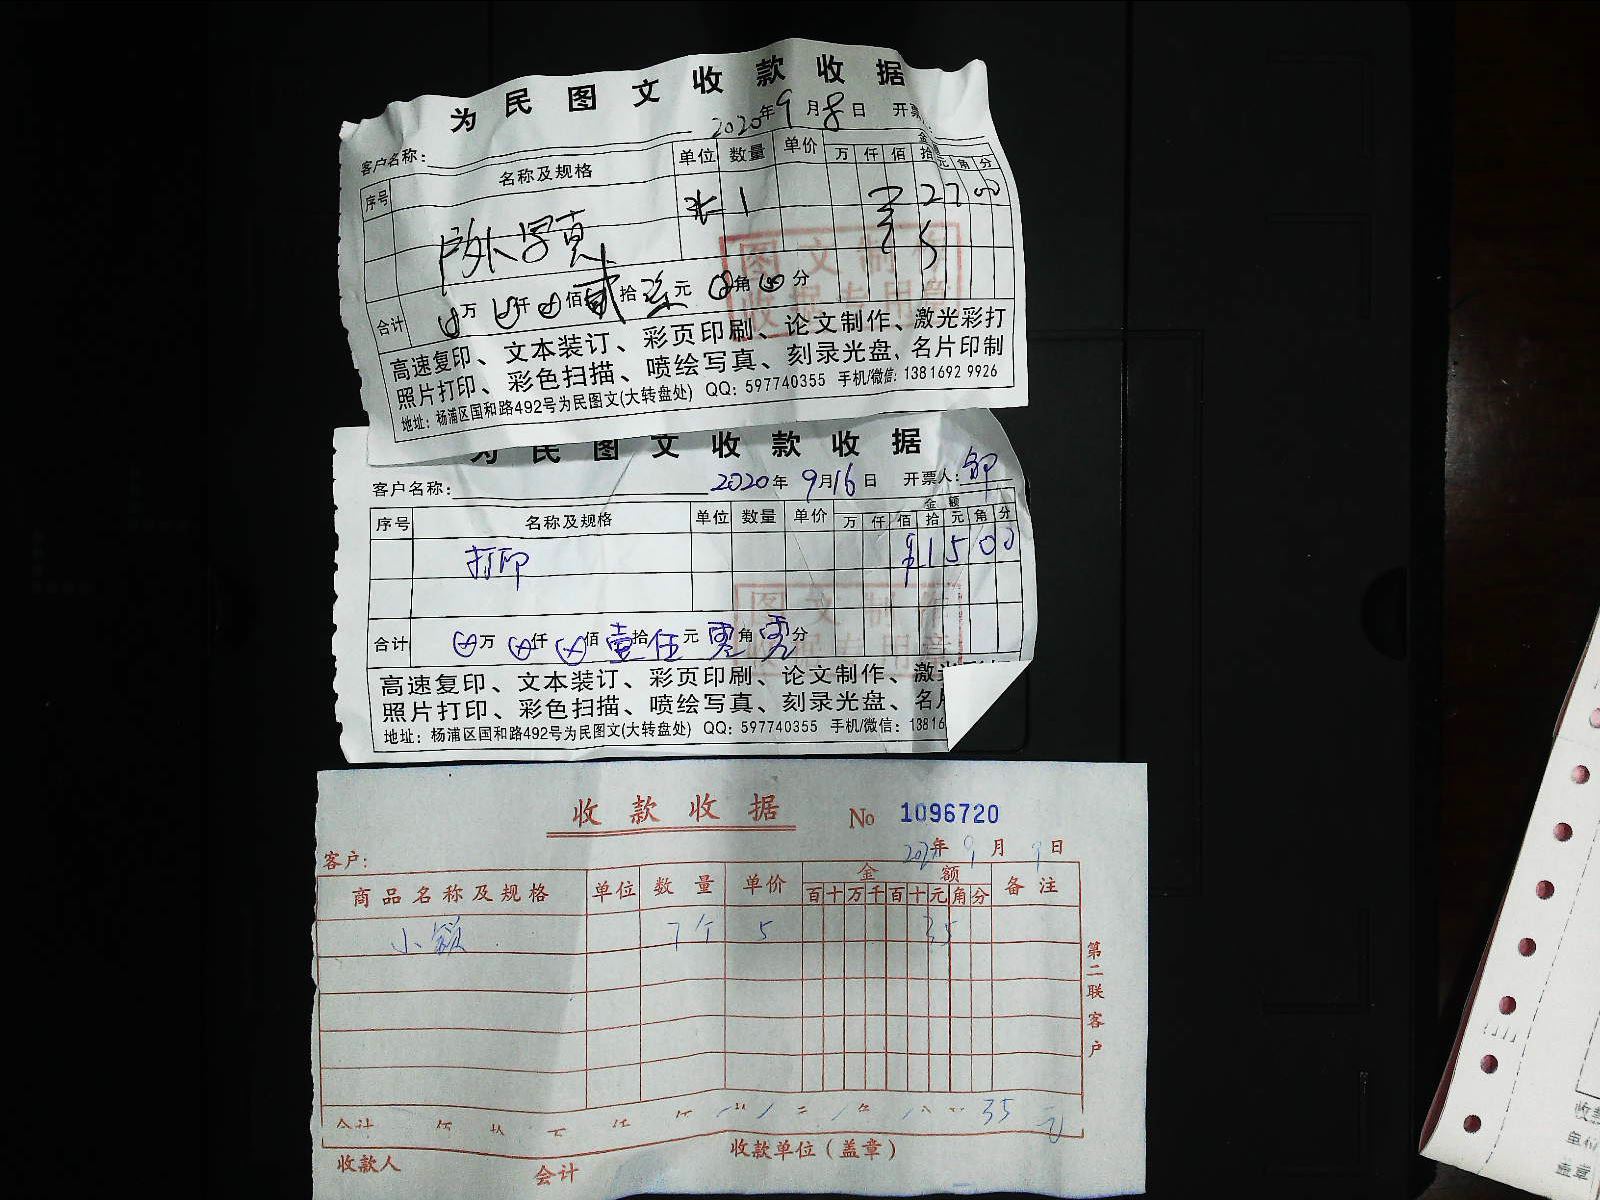 为民图文收款收据
2020年9月8日 开票人:
客户名称:
序号 名称及规格 单位 数量 单价 金额
万 仟 佰 拾 元 角 分
户外写真 张 1 2700
合计 万 仟 佰 贰 拾 元 角 分
图文制作
收据专用章
高速复印、文本装订、彩页印刷、论文制作、激光彩打
照片打印、彩色扫描、喷绘写真、刻录光盘,名片印制
地址:杨浦区国和路492号为民图文(大转盘处) QQ:597740355 手机/微信:138 1692 9926
为民图文收款收据
客户名称: 2020年9月16日 开票人:邹
序号 名称及规格 单位 数量 单价 金额
万 仟 佰 拾 元 角 分
打印 ¥1500
合计 万 仟 佰 壹拾伍元零角零分
图文制作
收据专用章
高速复印、文本装订、彩页印刷、论文制作、激
照片打印、彩色扫描、喷绘写真、刻录光盘、名
地址:杨浦区国和路492号为民图文(大转盘处) QQ:597740355 手机/微信:13816
收款收据 No 1096720
年 9月9日
客户:
商品名称及规格 单位 数量 单价 金额 备注
百 十 万 千 百 十 元 角 分
7个 5 35
第二联客户
合计 35元
收款单位(盖章)
收款人 会计